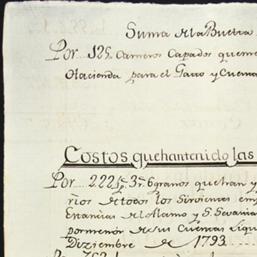 Suma de la Buelta
Por 125 Carneros Capados que me
Hacienda para el Gasto y Cuenta
Costos que han tenido las
Por 222 ps 3 rs 6 granos que han y
rios de todos los Sirvientes en
Estancias del Alamo y S.
pormenor de sus Cuentas liqu
Diziembre de 1793.
Por